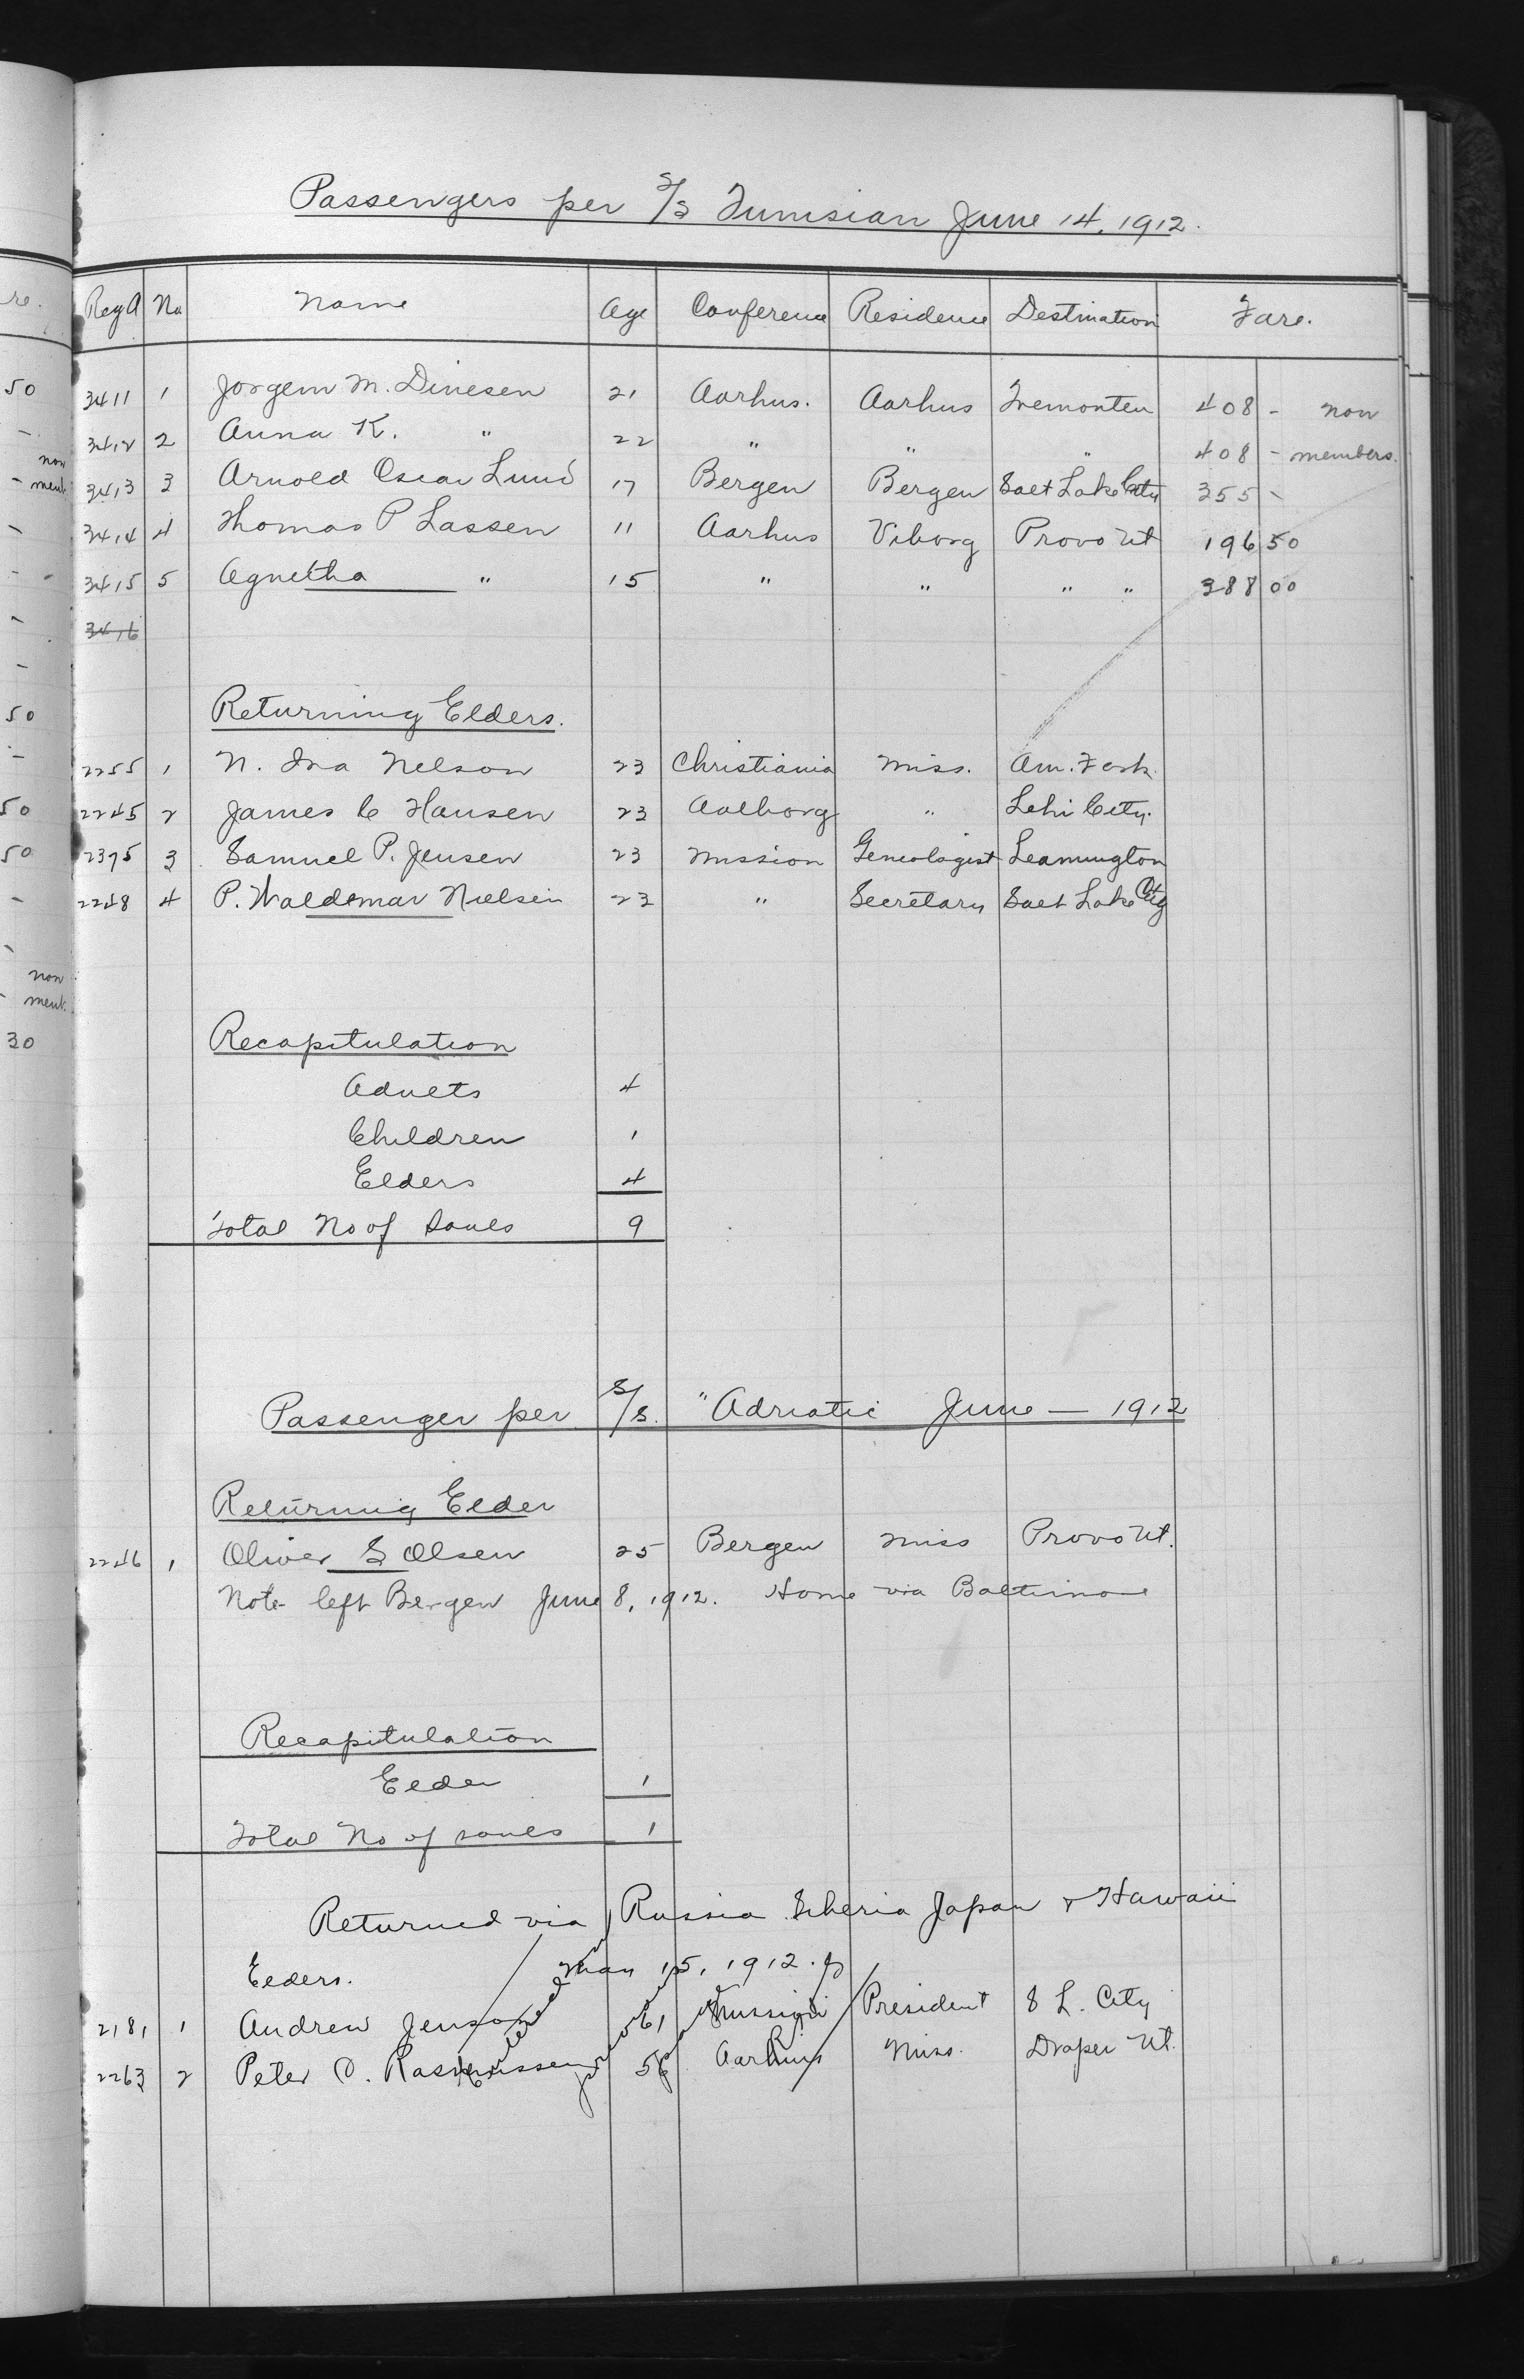 Passengers per S/S Tunisian June 14, 1912.
Reg A No Name Age Conference Residence Destination Fare.
3411 1 Jorgem M. Dinesen 21 Aarhus. Aarhus Tremonten 408 - non
3412 2 Anna K. " 22 " " " 408 - members.
3413 3 Arnold Oscar Lund 17 Bergen Bergen Salt Lake City 355 -
3414 4 Thomas P Lassen 11 Aarhus Viborg Provo Ut 196 50
3415 5 Agnetha " 15 " " " " 388 00
3416
Returning Elders.
2255 1 N. Ira Nelson 23 Christiania Miss. Am. Fork.
2245 2 James C Hansen 23 Aalborg " Lehi City.
2375 3 Samuel P. Jensen 23 Mission Geneologist Leamington
2248 4 P. Waldemar Nielsen 23 " Secretary Salt Lake City
Recapitulation
Adults 4
Children 1
Elders 4
Total No of Souls 9
Passenger per S/S. "Adriatic June — 1912
Returning Elder
2246 1 Oliver S Olsen 25 Bergen Miss Provo Ut.
Note left Bergen June 8, 1912. Home via Baltimore
Recapitulation
Elder 1
Total No of souls 1
Returned via Russia Siberia Japan & Hawaii
Elders. May 15, 1912.
2181 1 Andrew Jenson 61 Mission President S L. City
2263 2 Peter O. Rasmussen 56 Aarhus Miss. Draper Ut.
re.
50
non
memb.
50
50
50
non
memb.
30